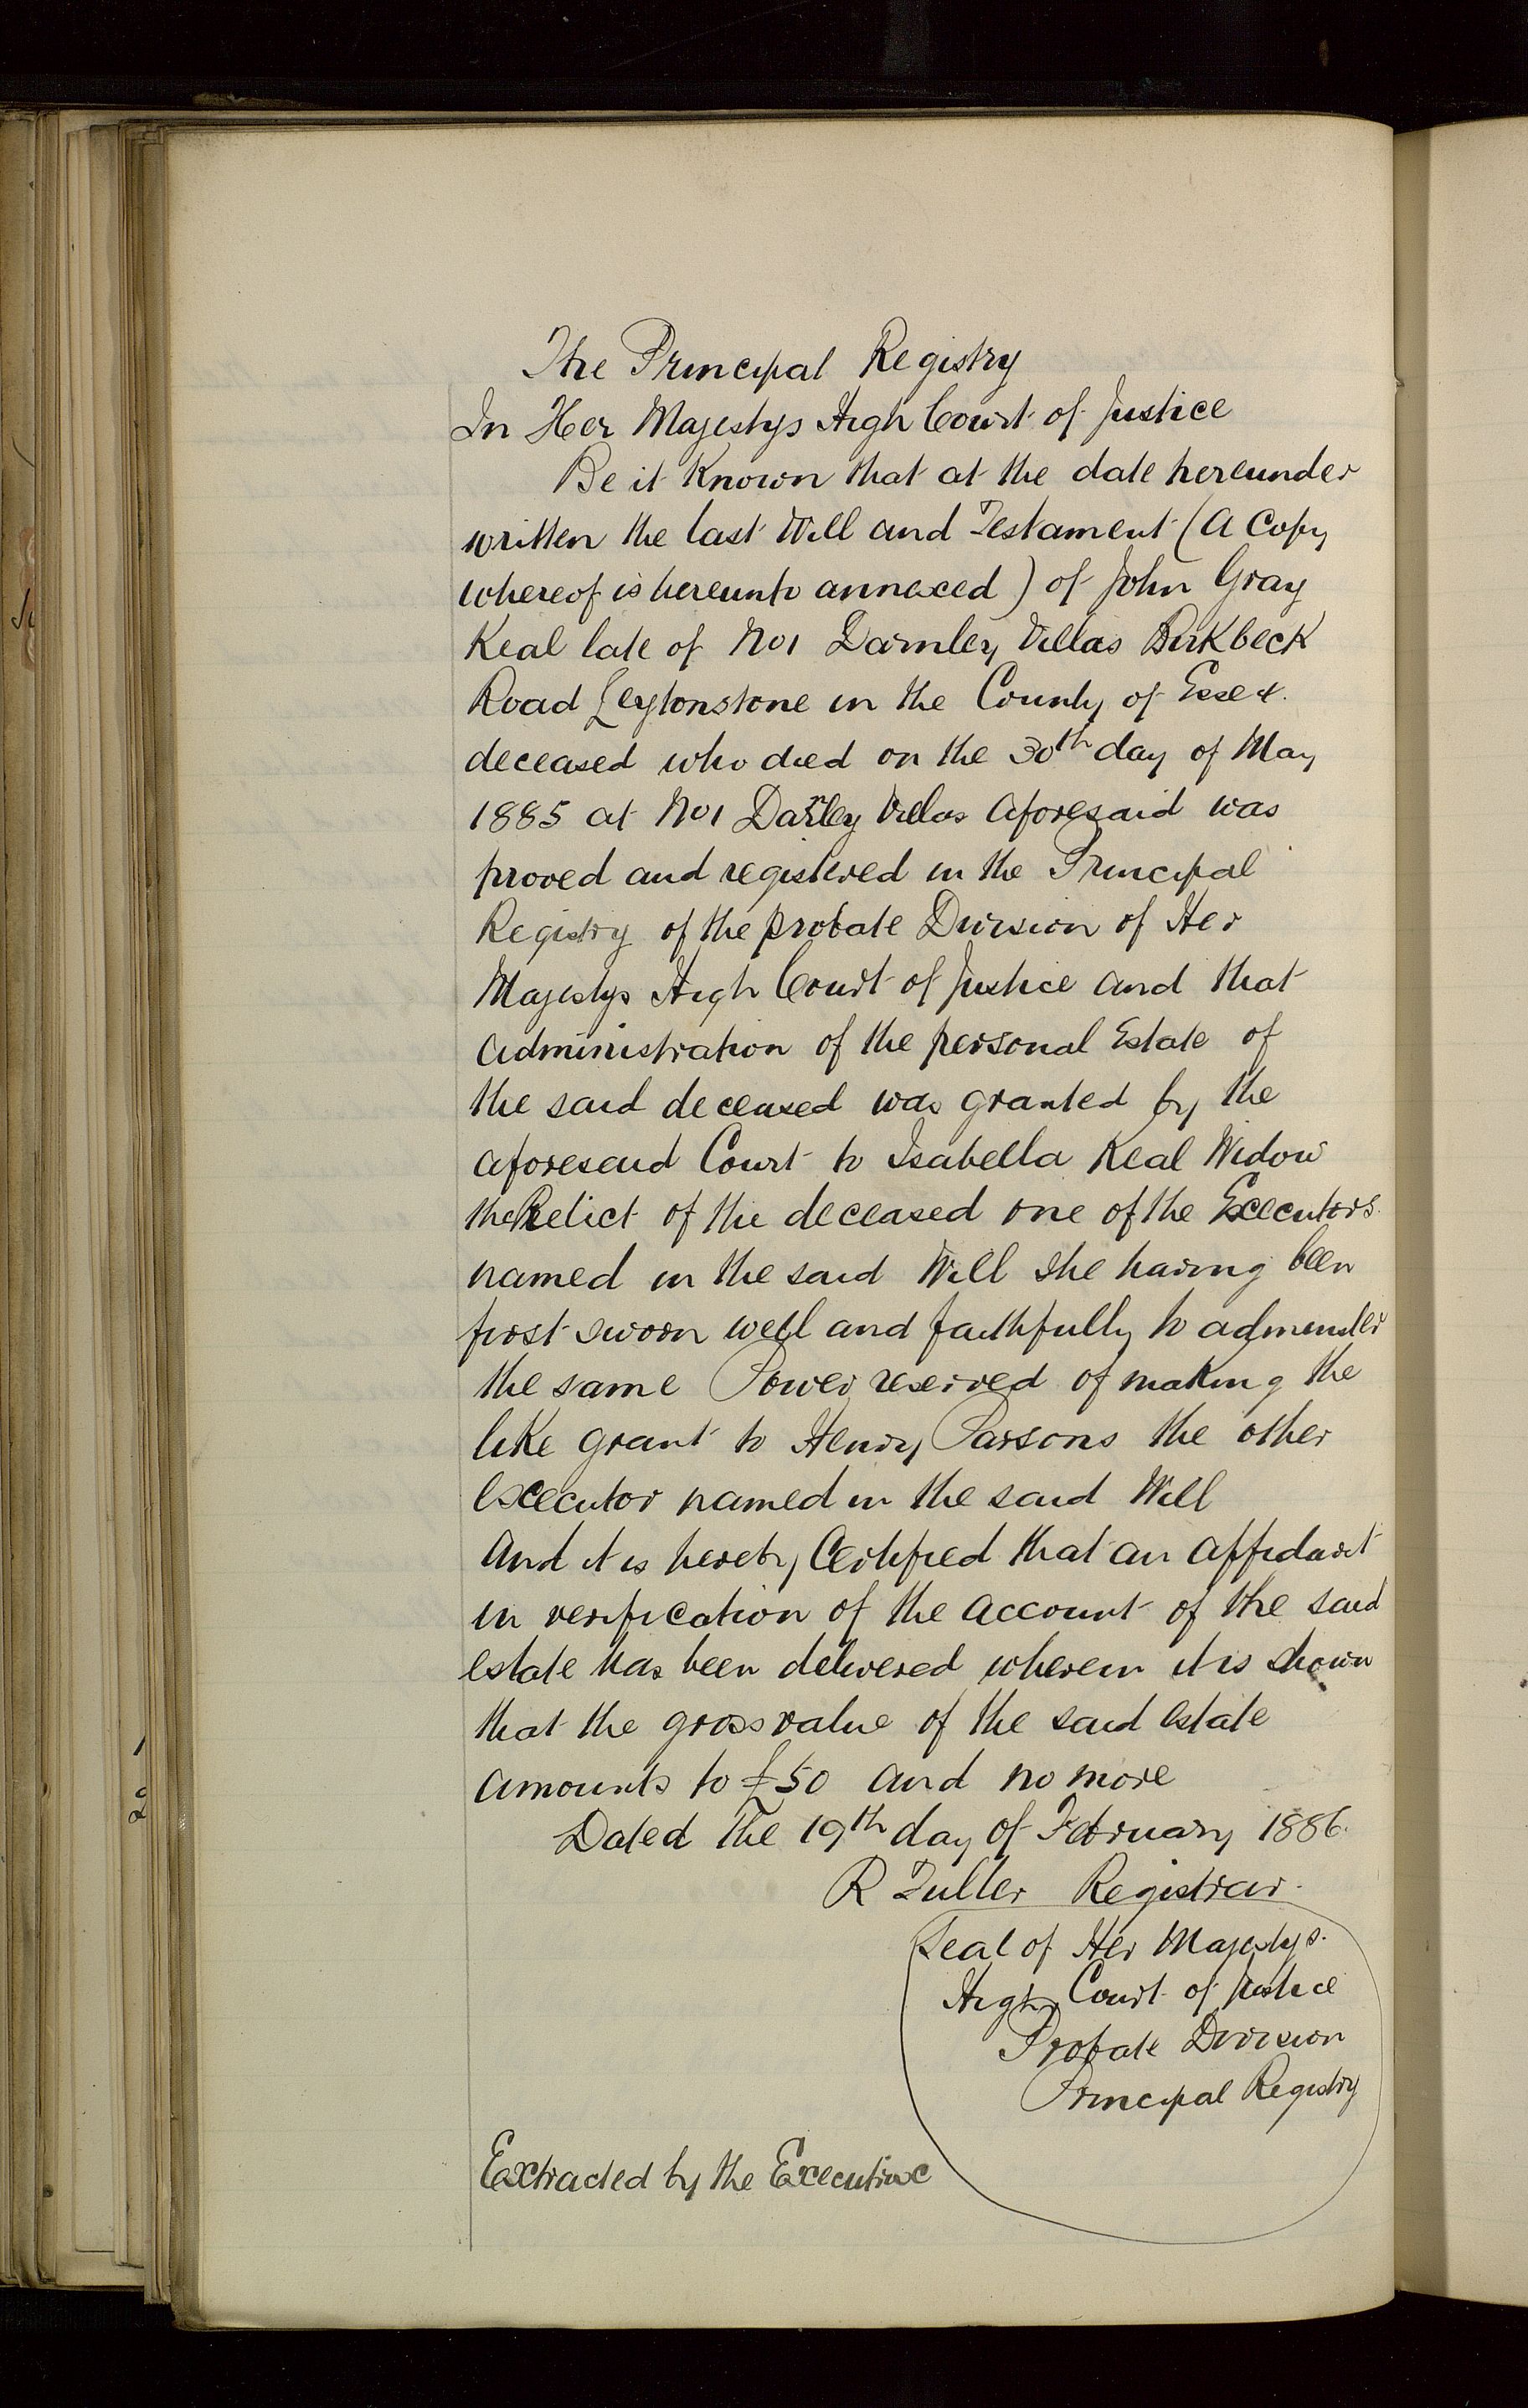 The Principal Registry
In Her Majestys High Court of Justice
Be it Known that at the date hereunder
written the last Will and Testament (a Copy
whereof is hereunto annexed) of John Gray
Keal late of No1 Darnley Villas Birkbeck
Road Leytonstone in the County of Essex.
deceased who died on the 30th day of May
1885 at No1 Darley Villas aforesaid was
proved and registered in the Principal
Registry of the probate Division of Her
Majestys High Court of Justice and that
administration of the personal Estate of
the said deceased was granted by the
aforesaid Court to Isabella Keal Widow
the Relict of the deceased one of the Executors
named in the said Will she having been
first sworn well and faithfully to administer
the same Power reserved of making the
like grant to Henry Parsons the other
executor named in the said Will
And it is hereby Certified that an affidavit
in verification of the account of the said
estate has been delivered wherein it is shown
that the gross value of the said estate
amounts to £50 and no more
Dated the 19th day of February 1886.
R Fuller Registrar.
Seal of Her Majestys.
High Court of Justice
Probate Division
Principal Registry
Extracted by the Executrix